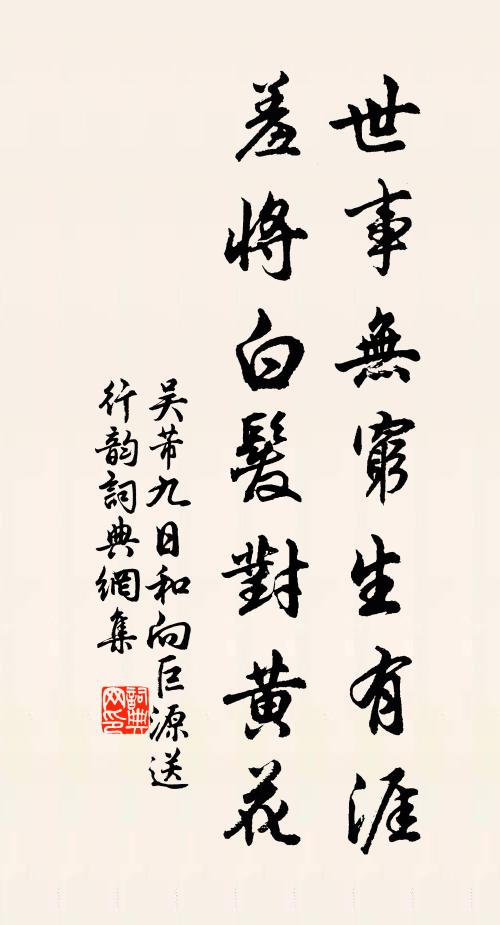 世事無窮生有涯
羞將白髮對黄花
吴芾九日和向巨源送
行韵詞典網集
詞典网印